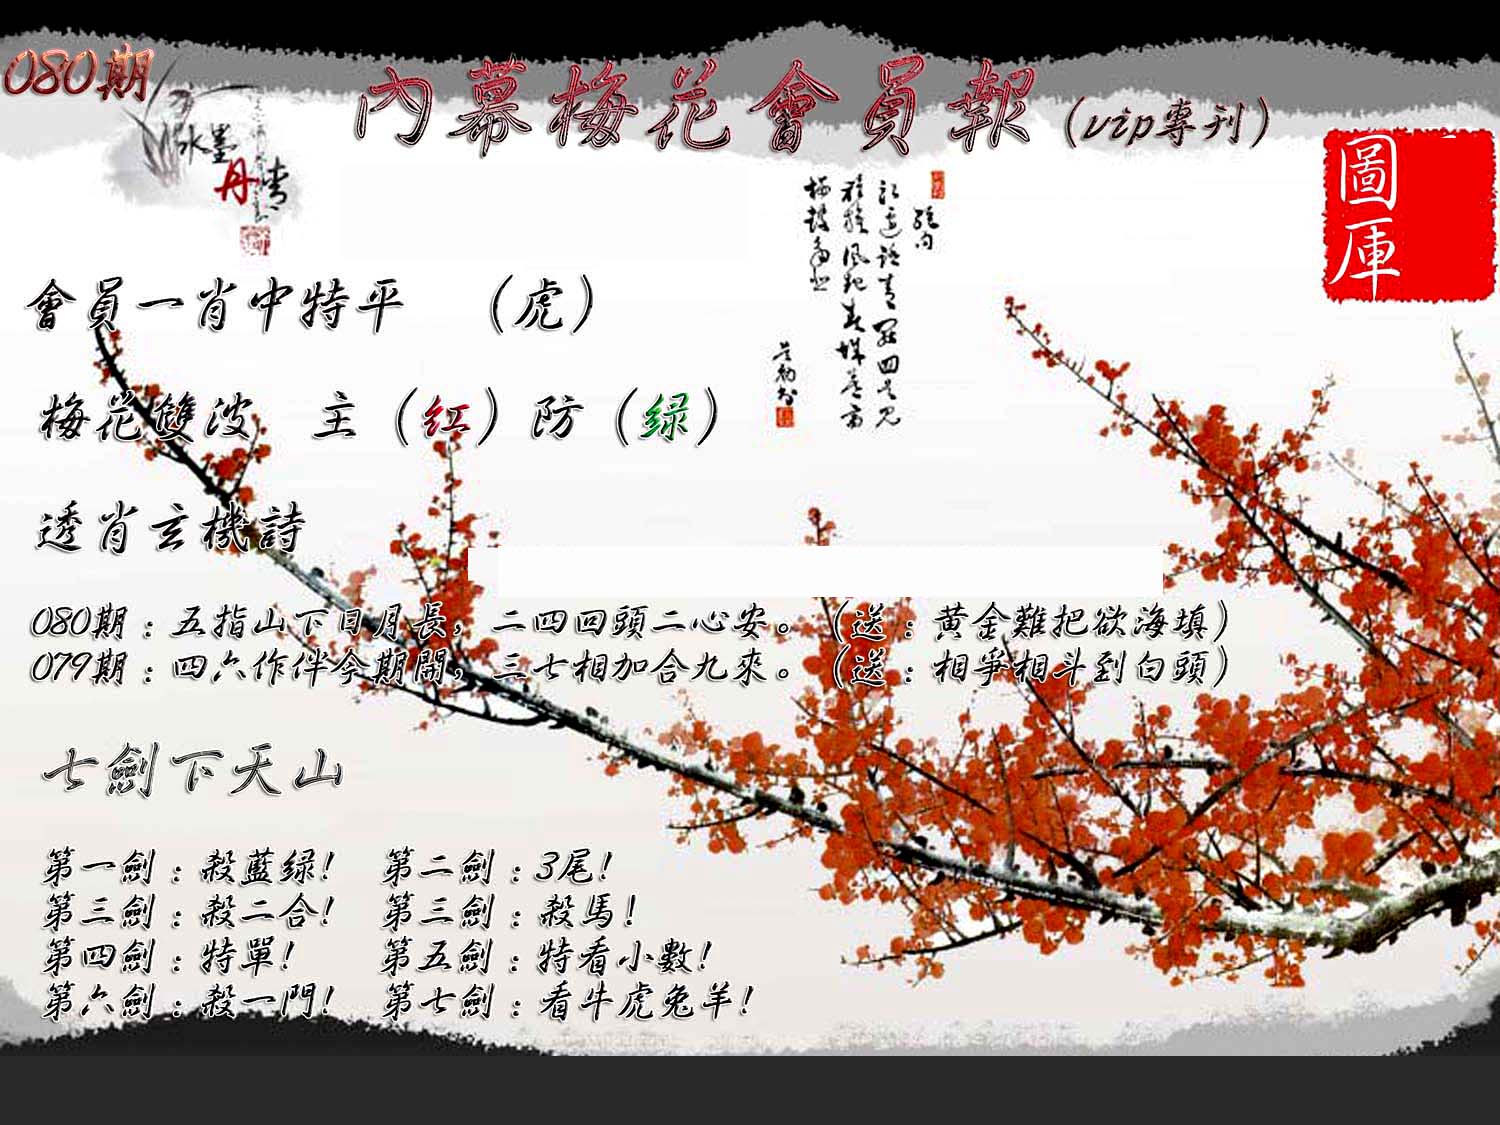 080期
內幕梅花會員報（vip專刊）
水墨
丹青
圖庫
會員一肖中特平 （虎）
梅花雙波 主（红）防（绿）
透肖玄機詩
080期：五指山下日月長，二四回頭二心安。（送：黄金難把欲海填）
079期：四六作伴今期開，三七相加合九來。（送：相爭相斗到白頭）
七劍下天山
第一劍：殺藍绿！ 第二劍：3尾！
第三劍：殺二合！ 第三劍：殺馬！
第四劍：特單！ 第五劍：特看小數！
第六劍：殺一門！ 第七劍：看牛虎兔羊！